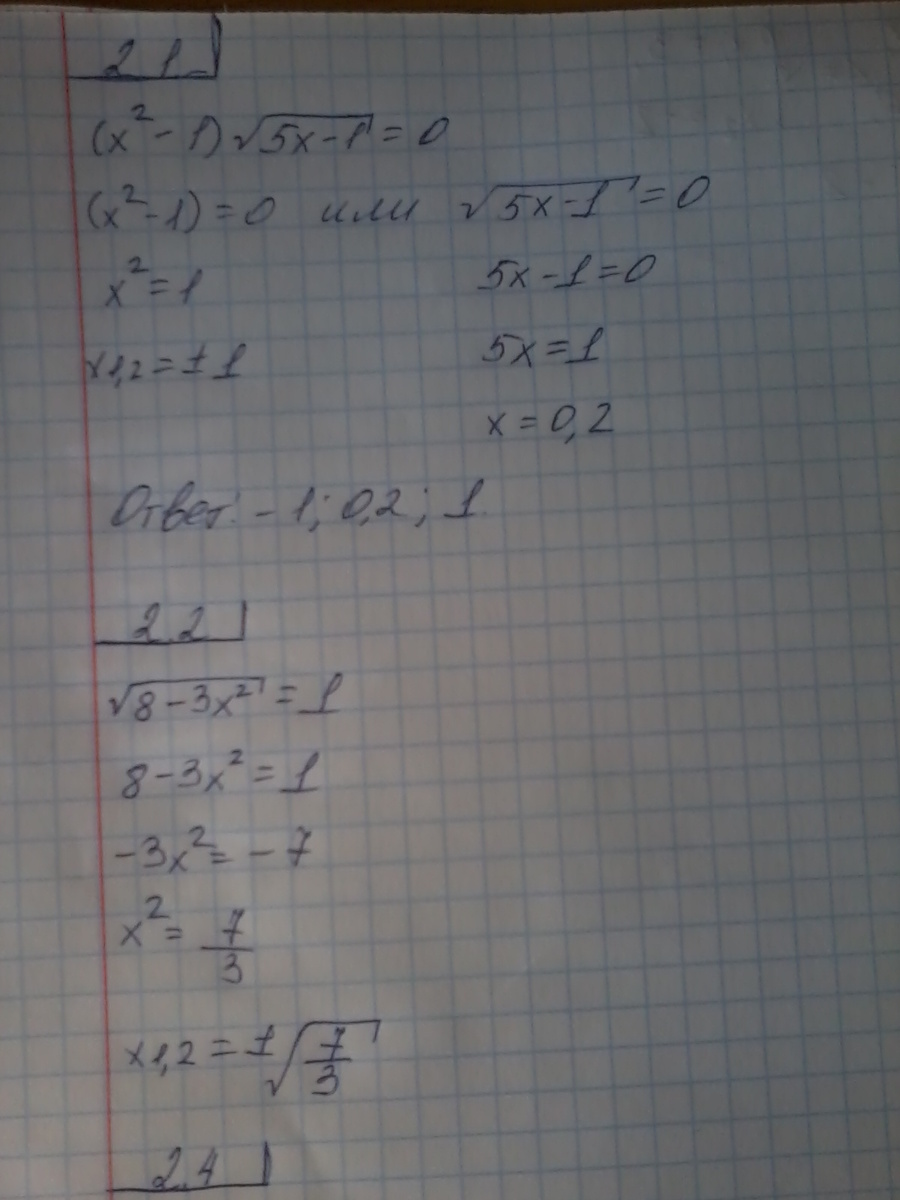 2 1
(x² - 1) √(5x - 1) = 0
(x² - 1) = 0 или √(5x - 1) = 0
x² = 1 5x - 1 = 0
x1,2 = ± 1 5x = 1
x = 0,2
Ответ: - 1; 0,2; 1.
2.2
√(8 - 3x²) = 1
8 - 3x² = 1
-3x² = - 7
x² = 7/3
x1,2 = ±√(7/3)
2.4